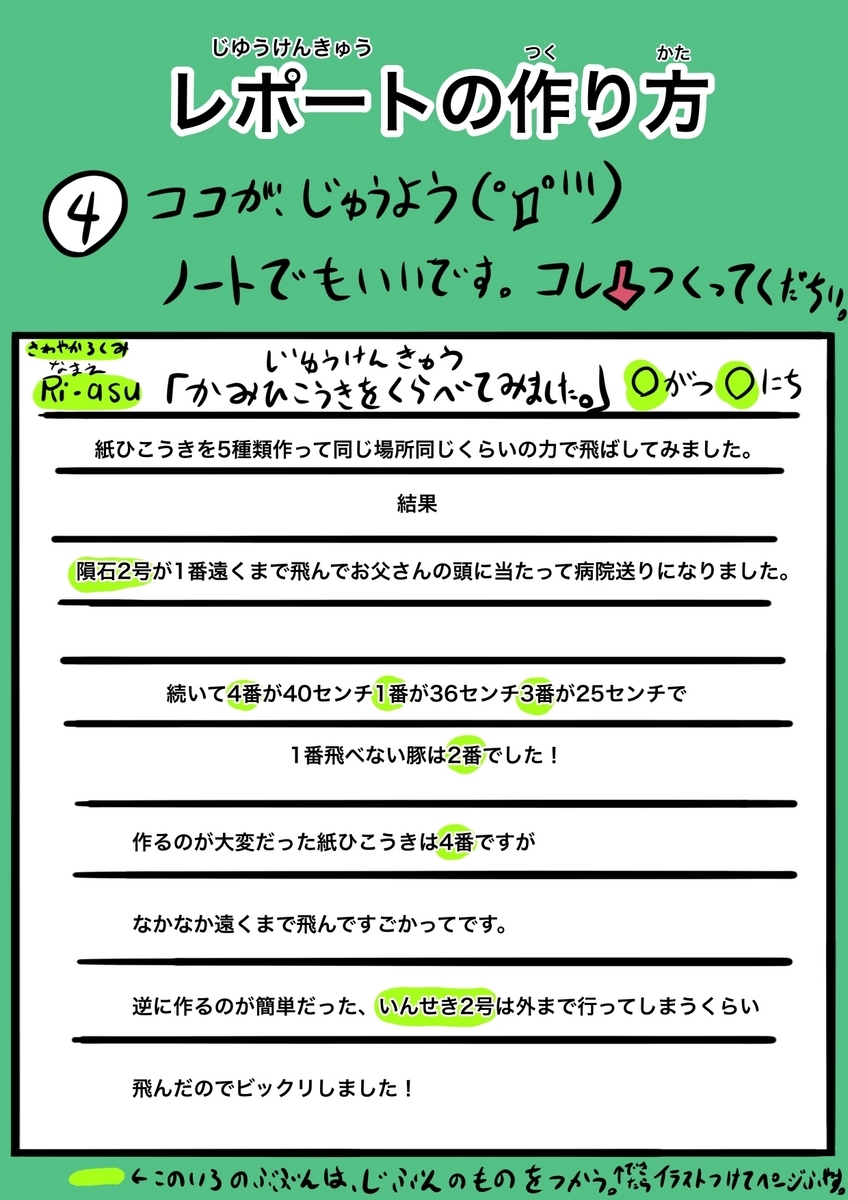 じゆうけんきゅう つく かた
レポートの作り方
4 ココが、じゅうよう(°д°|||)
ノートでもいいです。コレ↓つくってくだちい。
さわやかるくみ
なまえ
Ri-asu
じゆうけんきゅう
「かみひこうきをくらべてみました。」 〇がつ〇にち
紙ひこうきを5種類作って同じ場所同じくらいの力で飛ばしてみました。
結果
隕石2号が1番遠くまで飛んでお父さんの頭に当たって病院送りになりました。
続いて4番が40センチ1番が36センチ3番が25センチで
1番飛べない豚は2番でした!
作るのが大変だった紙ひこうきは4番ですが
なかなか遠くまで飛んですごかってです。
逆に作るのが簡単だった、いんせき2号は外まで行ってしまうくらい
飛んだのでビックリしました!
←このいろのぶぶんは、じぶんのものをつかう。↑できたら イラストつけてページふやす。